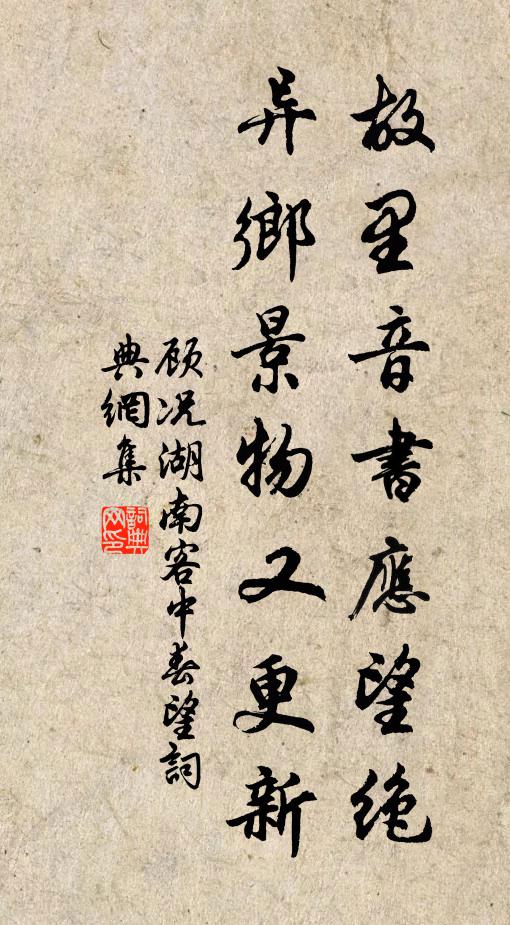 故里音書應望絶
异鄉景物又更新
顾况湖南客中春望詞
典網集
詞典網印